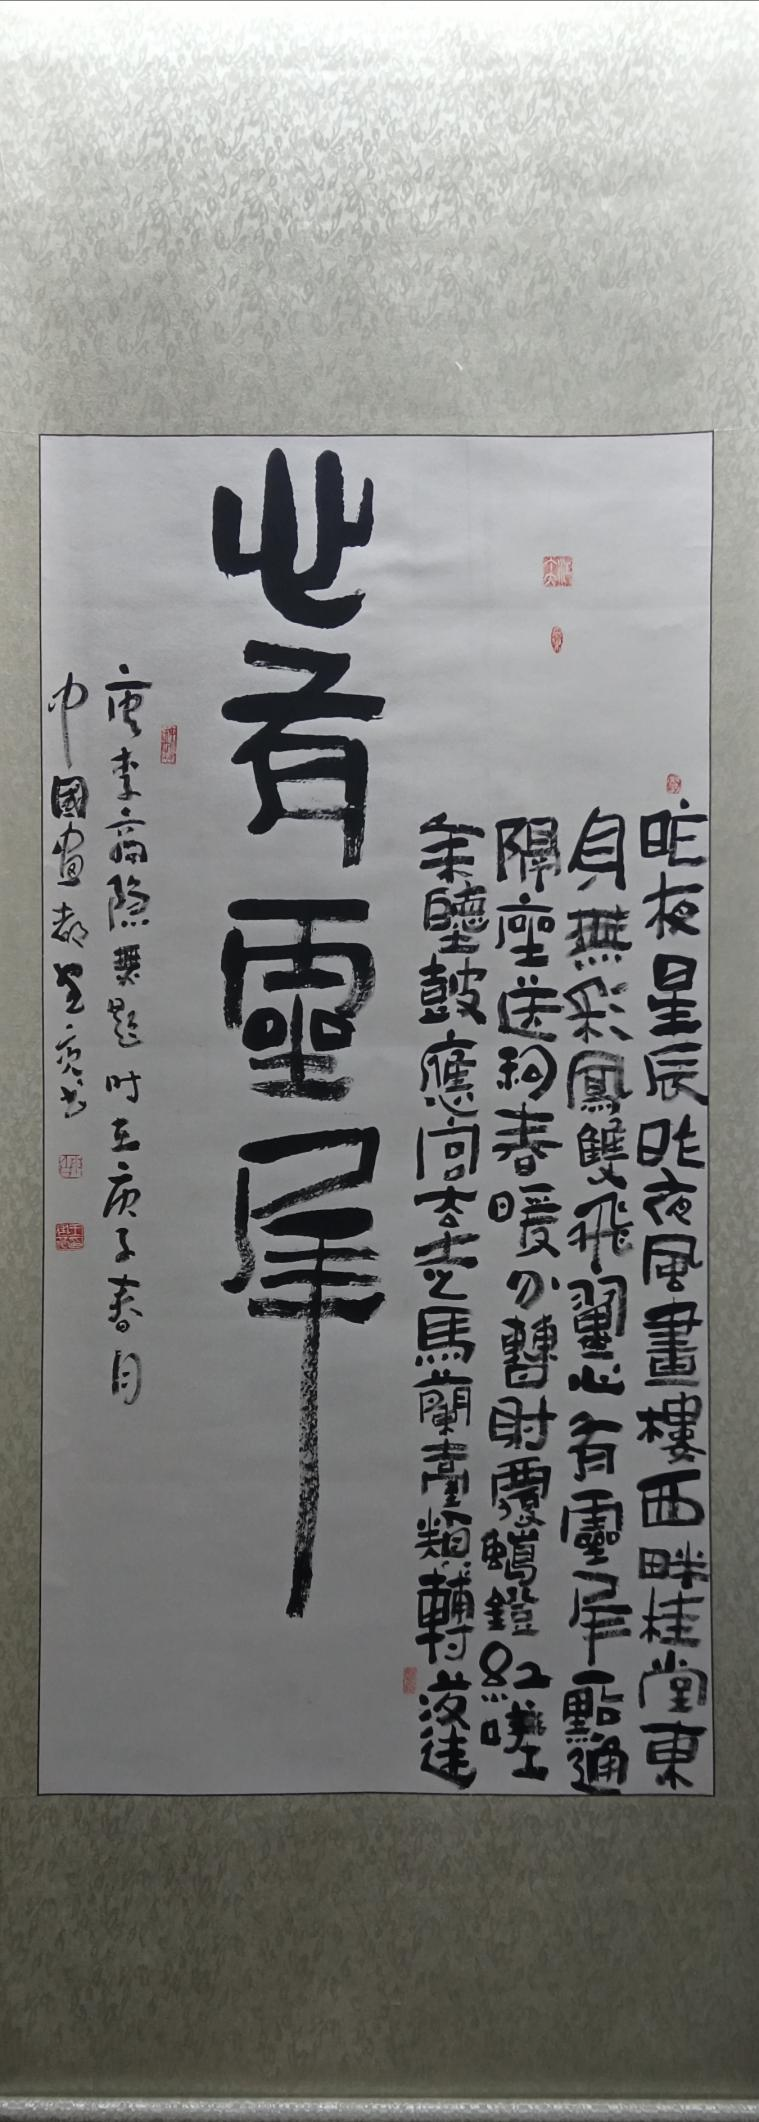 昨夜星辰昨夜風畫樓西畔桂堂東
身無彩鳳雙飛翼心有靈犀一點通
隔座送鉤春暖分曹射覆蠟鐙紅嗟
余聽鼓應官去走馬蘭臺類轉蓬
心有靈犀
唐李商隐無題时在庚子春月
中國畫都